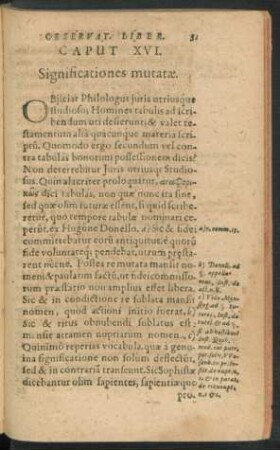 OBSERVAT. LIBER. 81
CAPUT XVI.
Significationes mutatæ.
OBjiciat Philologus juris utriusque
studioso; Homines tabulis ad scri-
bendum uti desierunt; & valet te-
stamentum aliâ quâcunque materia scri-
ptū. Quomodo ergo secundum vel con-
tra tabulas bonorum possessionem dicis?
Non deterrebitur Juris utriusq; Studio-
sus. Quin alacriter proloquatur,
dici tabulas, non quæ nunc ita sint,
sed quæ olim futuræ essent, si quid scribe-
retur, quo tempore tabulæ nominari cœ-
perunt, ex Hugone Donello. a) Sic & fidei-
committebatur corū antiquitus, è quorū
fide voluntateq; pendebat, utrum præsta-
rent nécne. Postea re mutata mansit no-
men; & paulatim factū, ut fideicommisso-
rum præstatio non amplius esset libera.
Sic & in condictione re sublata mansit
nomen, quod actioni initio fuerat. b)
Sic & ritus obnubendi sublatus est;
mansit attamen nuptiarum nomen. c)
Quinimò reperias vocabula, quæ à genu-
ina significatione non solum deflectūt,
sed & in contrariā transeunt. Sic Sophistæ
dicebantur olim sapientes, sapientiæque
pro-
a) 7. comm. 15.
b) Donell. ad
§. appella-
mus, Inst. de
act. n. 8.